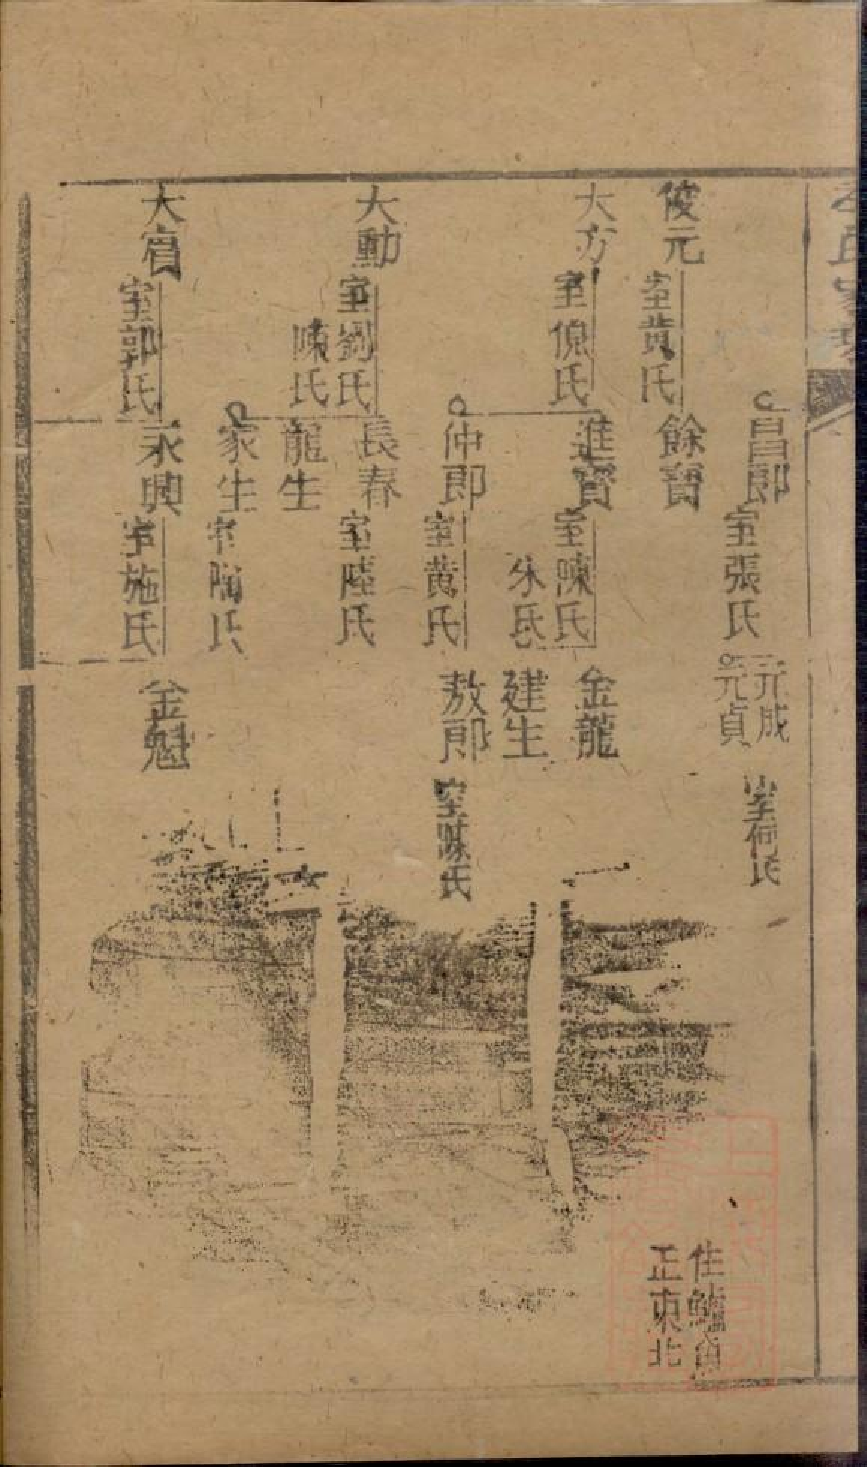 昌郎
室張氏
元成
室何氏
元貞
俊元
室黄氏
餘寶
住鱸魚
正東北
大方
室倪氏
進寳
室陳氏
朱氏
金龍
建生
仲郎
室黄氏
敖郎
室陳氏
大動
室劉氏
陳氏
長春
室陸氏
龍生
家生
室陶氏
大賔
室郭氏
永興
室施氏
金魁